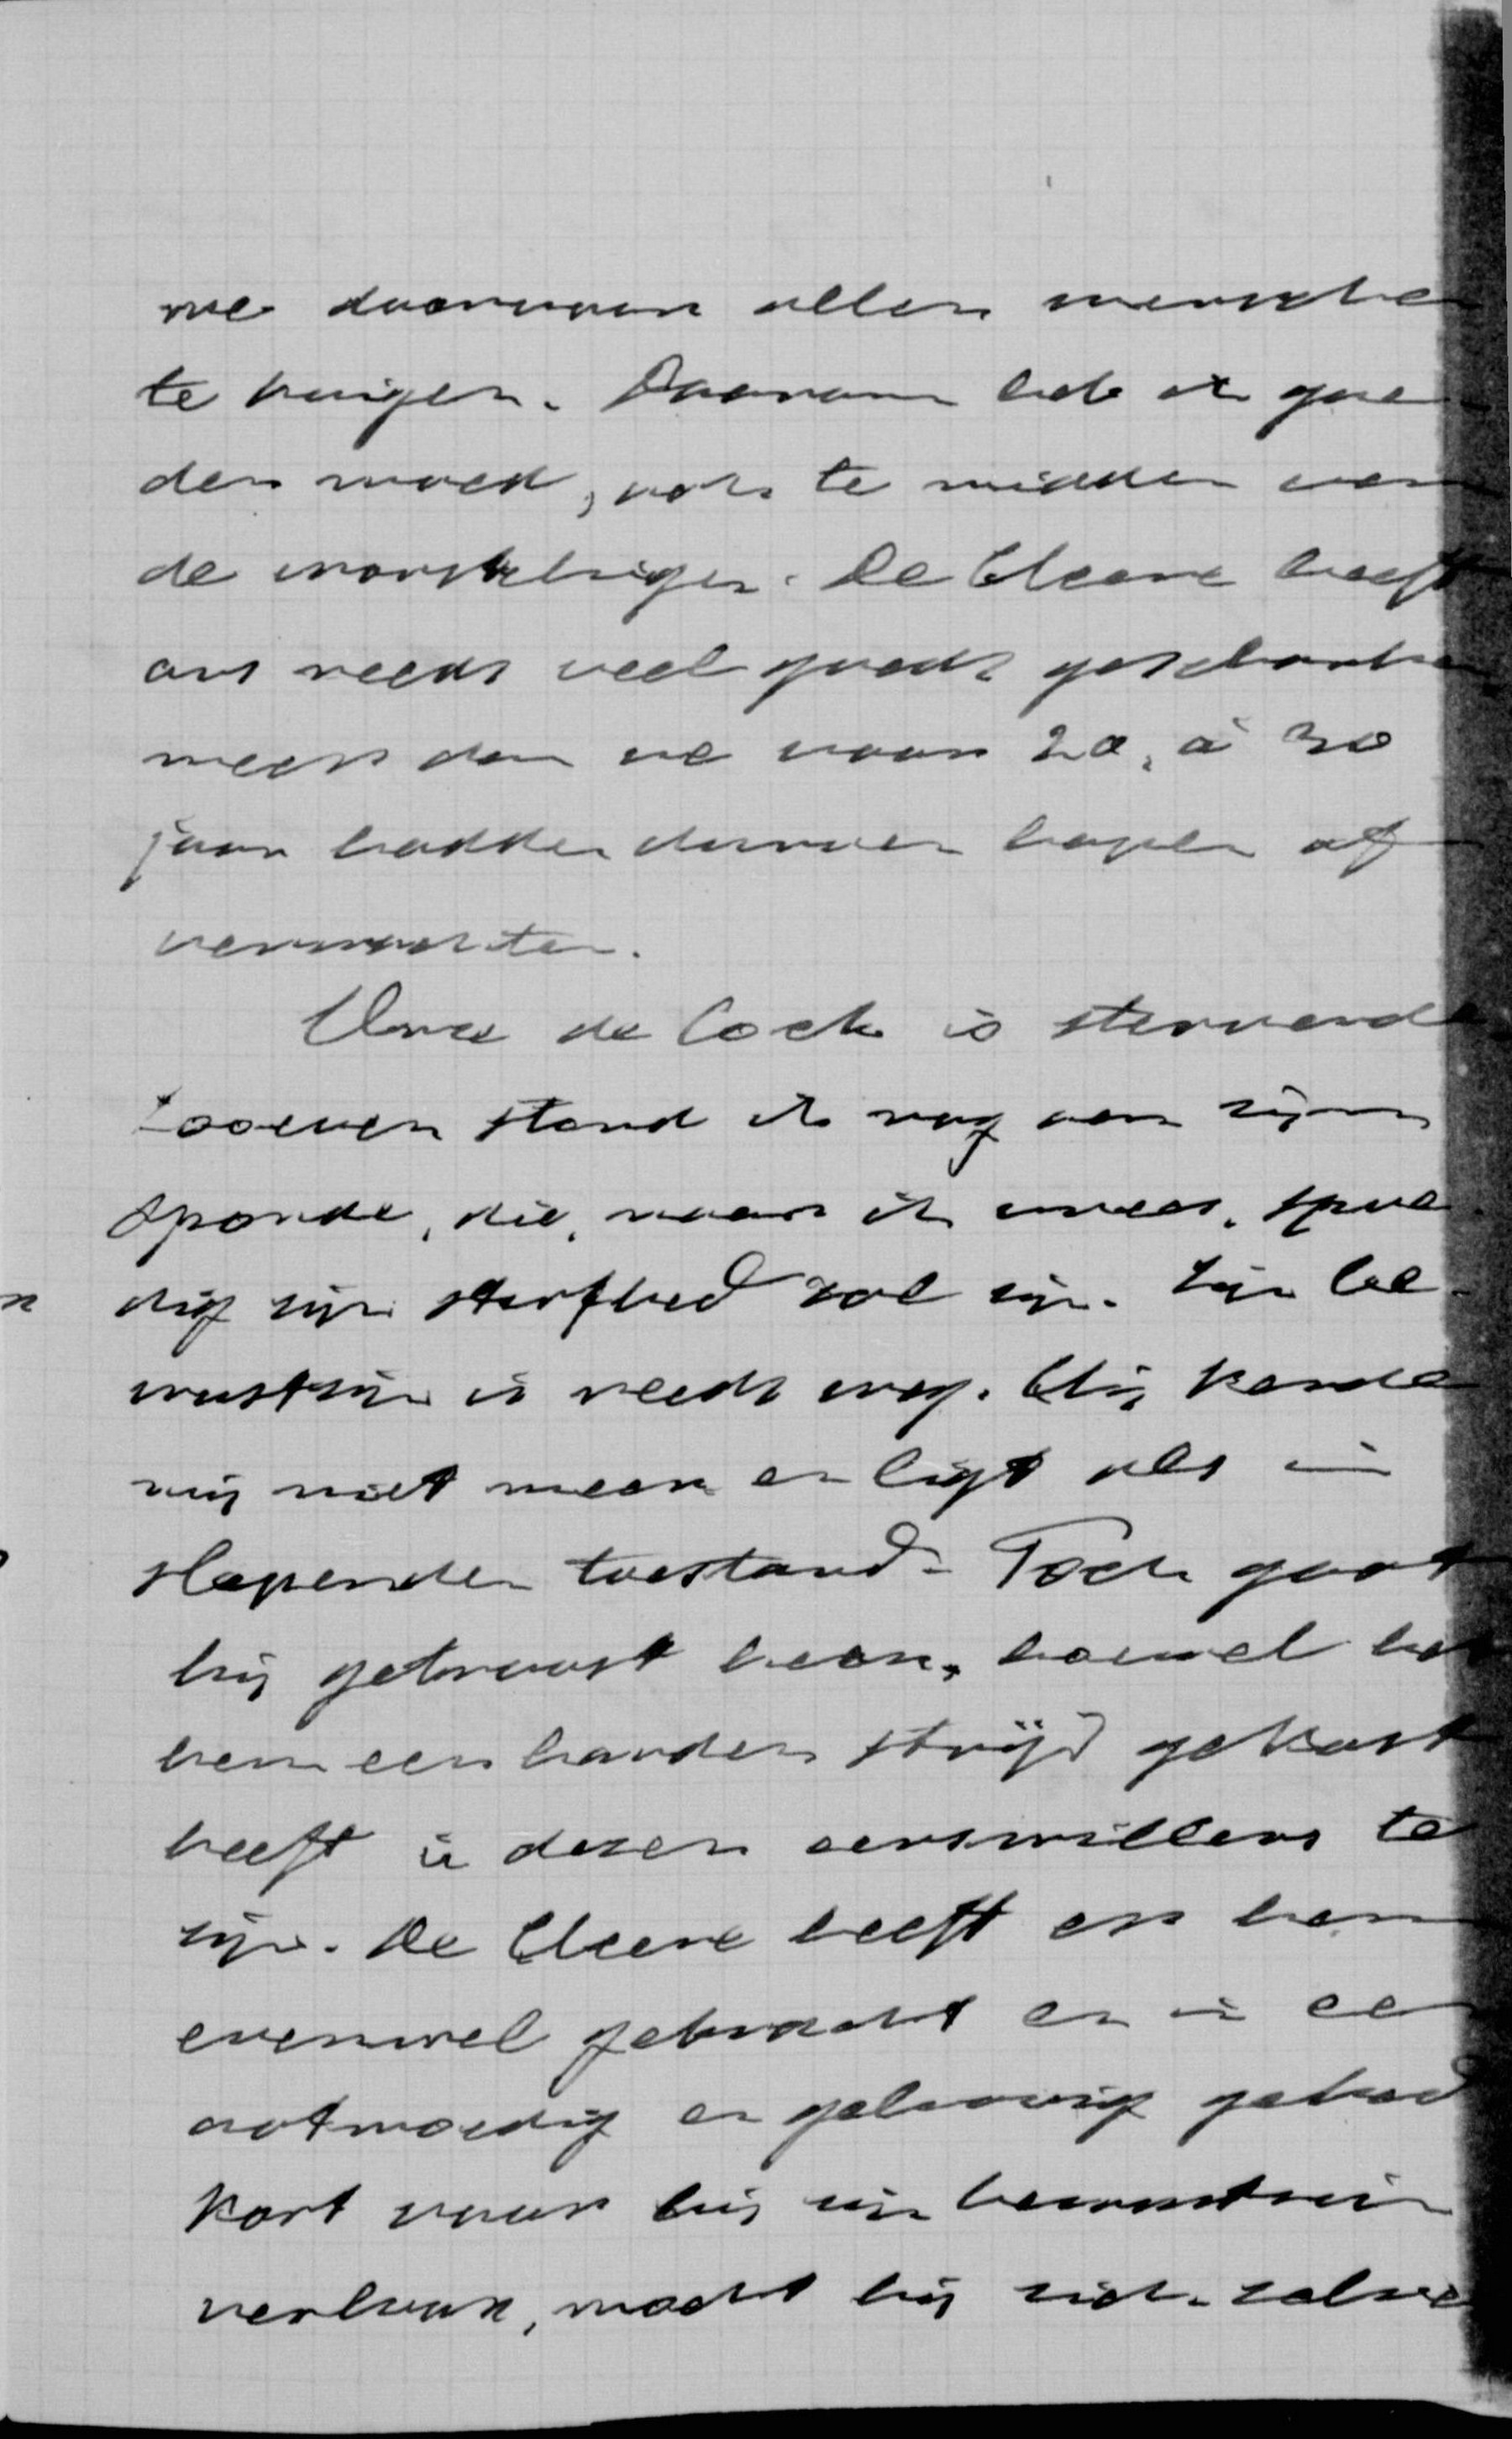 we daarvoor allen menschen
te buigen. Daarom heb ik goe
den moed, ook te midden van
de worstelingen. De Heere heeft
ons reeds veel goeds geschonken
meer dan we voor 20, à 30
jaar hadden durven hopen of
verwachten.
Onze de Cock is stervende
Zooeven stond ik nog aan zijn
sponde, die, naar ik vrees, spoe
dig zijn sterfbed zal zijn. Zijn be-
wustzijn is reeds weg. Hij kende
mij niet meer en ligt als in
slapenden toestand. Toch gaat
hij getroost heen, hoewel het
hem een harden strijd gekost
heeft in dezen eenswillens te
zijn. De Heere heeft er hem
evenwel gebracht en in een
ootmoedig en geloovig gebed
kort voor hij zijn bewustzijn
verloor, mocht hij zich zelve